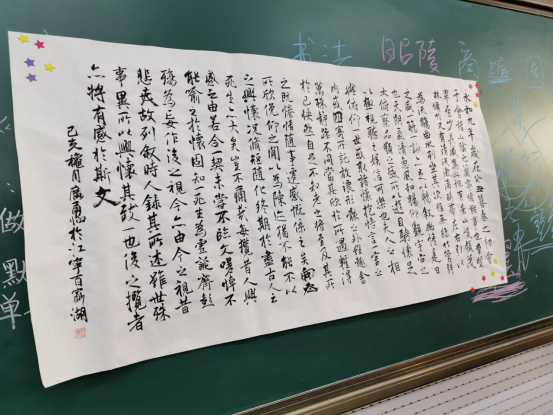 书法 昭陵
做
默
单
永和九年歲在癸丑暮春之初會
于會稽山陰之蘭亭脩禊事也群賢
畢至少長咸集此地有崇山峻領茂
林脩竹又有清流激湍暎帶左右引以
為流觴曲水列坐其次雖無絲竹管弦
之盛一觴一詠亦足以暢敘幽情是日
也天朗氣清惠風和暢仰觀宇宙之
大俯察品類之盛所以遊目騁懷足
以極視聽之娛信可樂也夫人之相
與俯仰一世或取諸懷抱悟言一室之
內或因寄所託放浪形骸之外雖趣舍
萬殊靜躁不同當其欣於所遇輙得
於己快然自足不知老之將至及其所
之既倦情隨事遷感慨係之矣向之
所欣俛仰之間以為陳迹猶不能不以
之興懷況脩短隨化終期於盡古人云
死生亦大矣豈不痛哉每攬昔人興
感之由若合一契未嘗不臨文嗟悼不
能喻之於懷固知一死生為虛誕齊彭
殤為妄作後之視今亦由今之視昔
悲夫故列敘時人錄其所述雖世殊
事異所以興懷其致一也後之攬者
亦將有感於斯文
己亥 月 勇於江寧百家湖